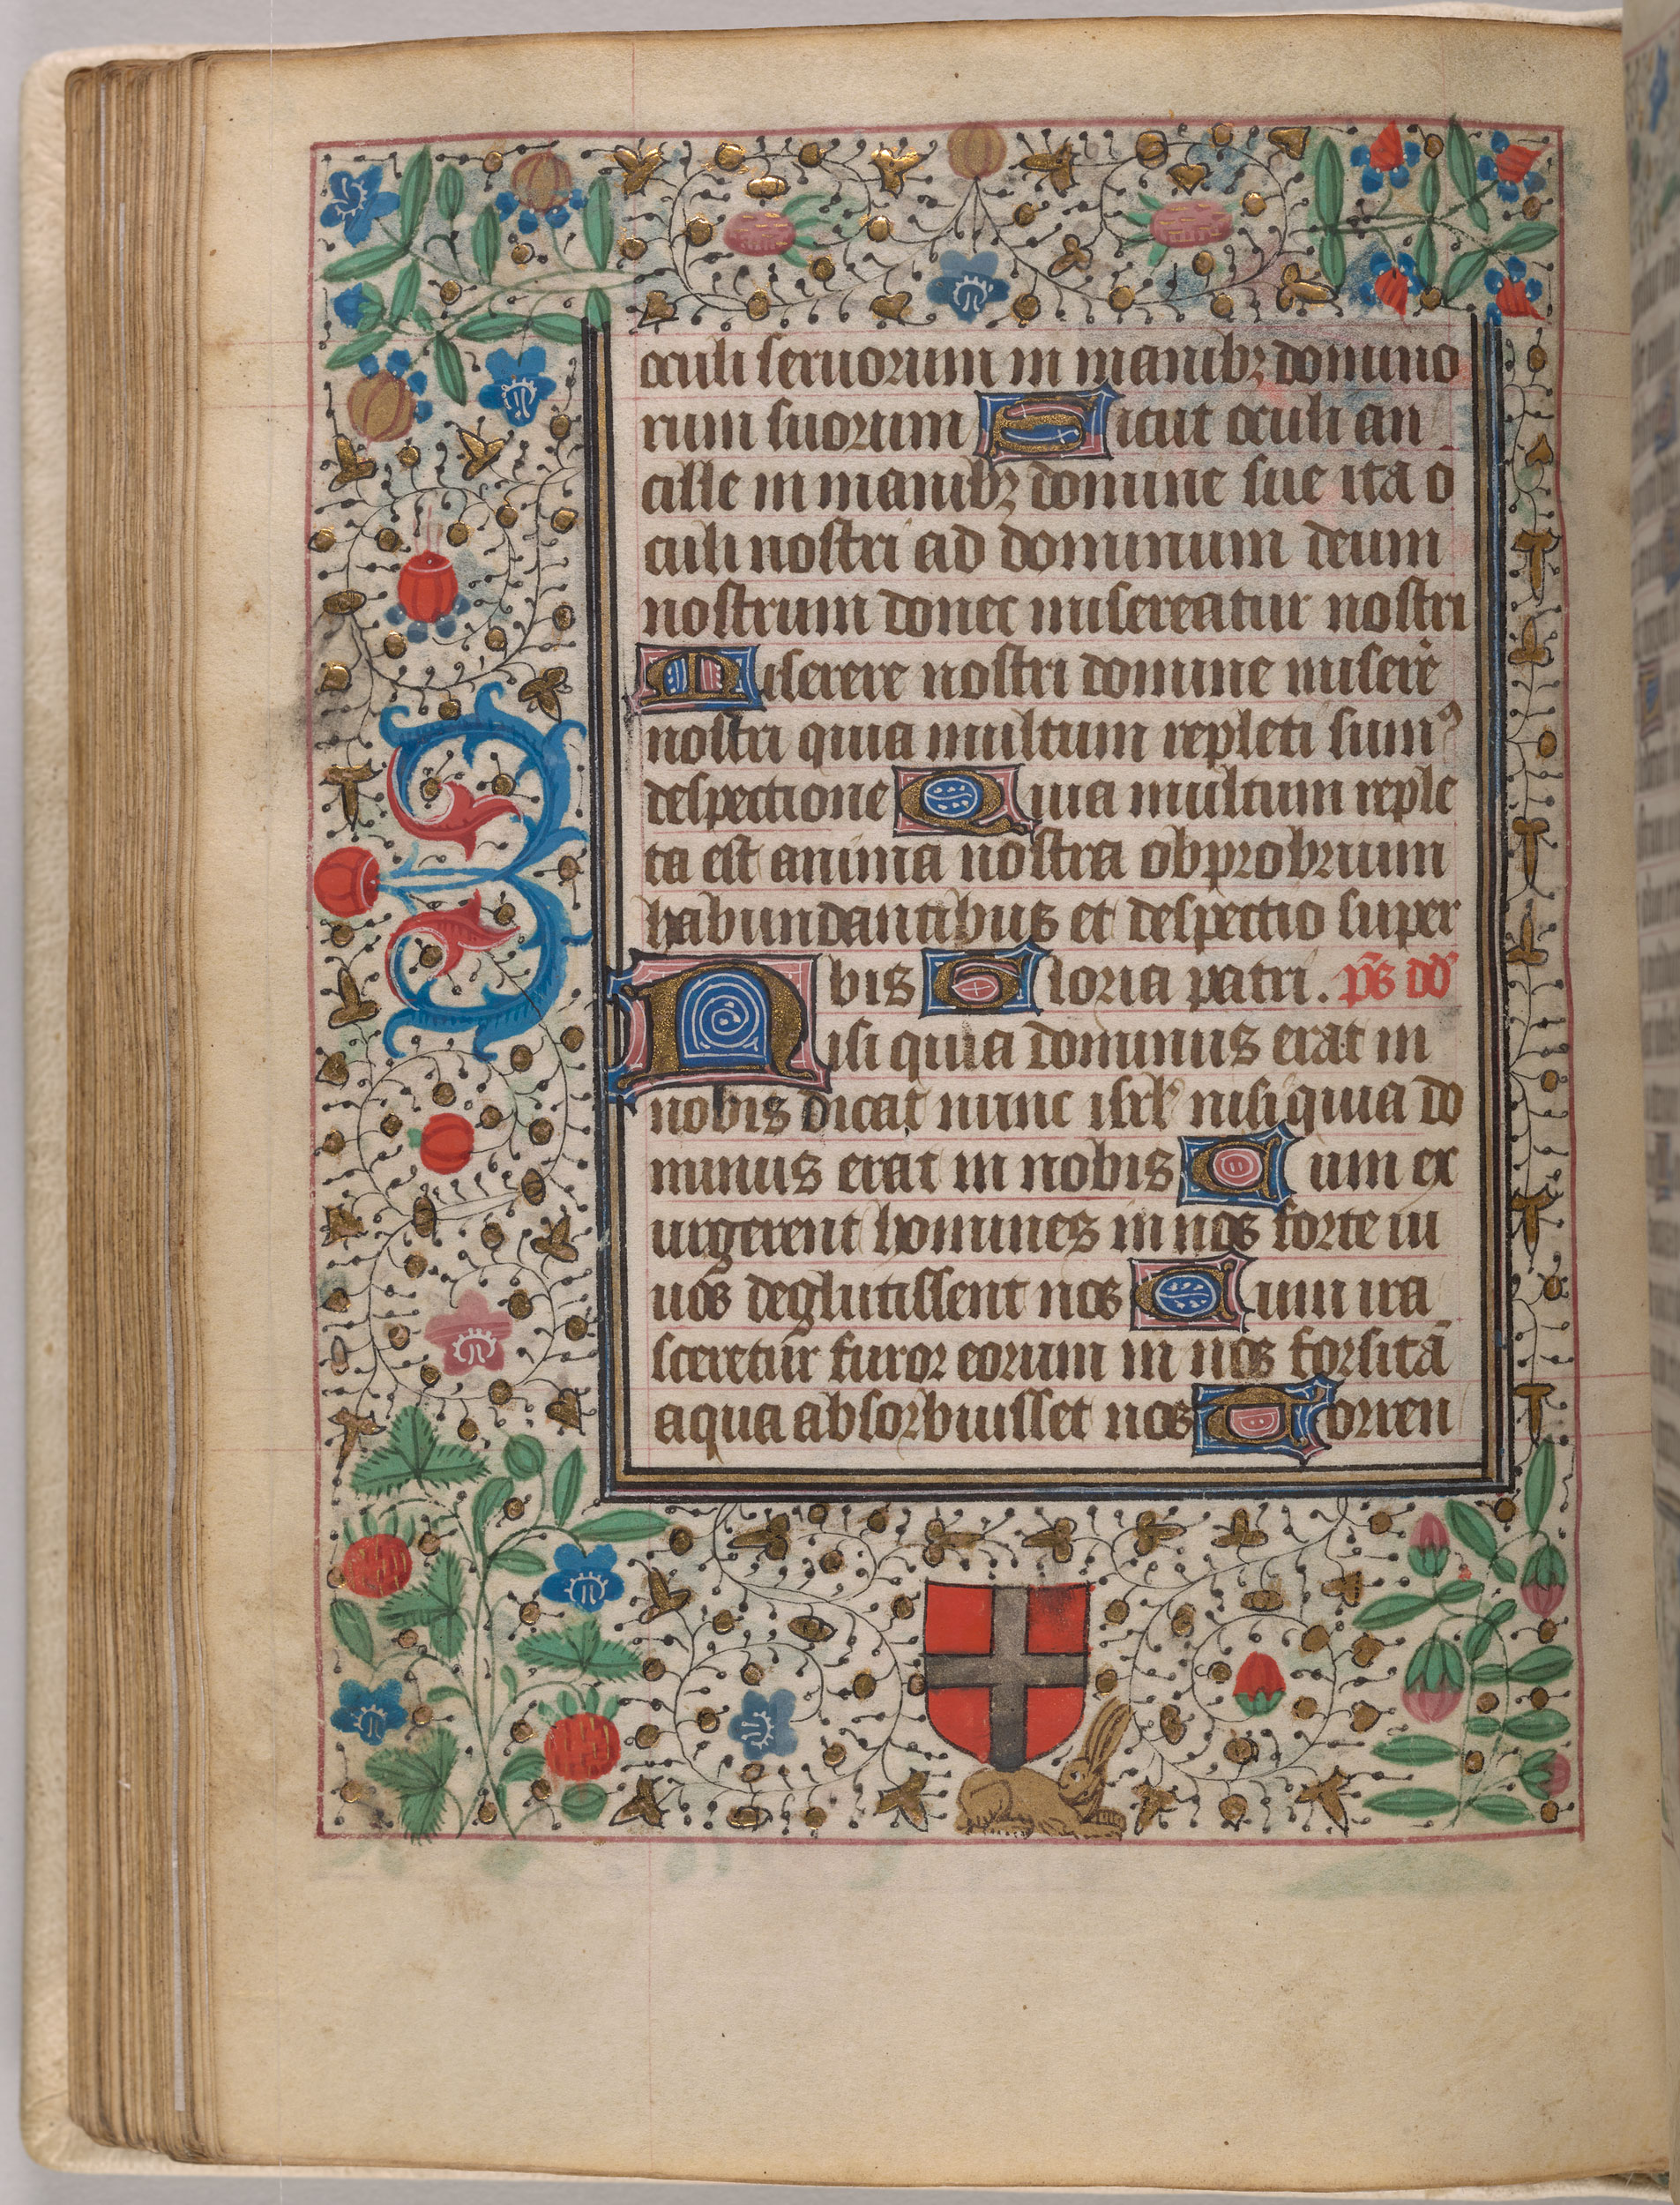 oculi seruorum in manibꝫ domino
rum suorum Sicut oculi an
cille in manibꝫ domine sue ita o
culi nostri ad dominum deum
nostrum donec misereatur nostri
Miserere nostri domine miserẽ
nostri quia multum repleti sumꝰ
despectione Quia multum reple
ta est anima nostra obprobrium
habundantibus et despectio super
bis Gloria patri. p̃s dd̾
Nisi quia dominus erat in
nobis dicat nunc isrl̾ nisi quia do
minus erat in nobis Cum ex
urgerent homines in nos forte ui
uos deglutissent nos Cum ira
sceretur furor eorum in nos forsitã
aqua absorbuisset nos Torren